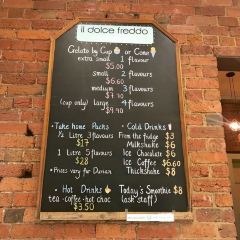 il dolce freddo
Gelato by Cup or Cone
extra small 1 flavour
$5.00
small 2 flavours
$6.60
medium 3 flavours
$7.90
(cup only) large 4 flavours
$9.90
• Take home Packs
½ Litre 3 flavours
$17
1 Litre 5 flavours
$28
• Prices vary for Durian
• Hot Drinks
tea-coffee-hot choc
$3.50
• Cold Drinks
From the fridge $3
Milkshake $6
Ice Chocolate $6
Ice Coffee $6.60
Thickshake $8
Today's Smoothie $8
(ask staff)